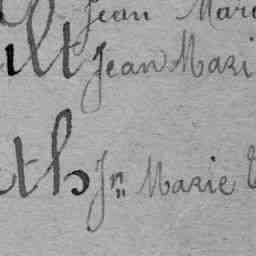 Jean Mari
ult Jean Mari
th Jn Marie